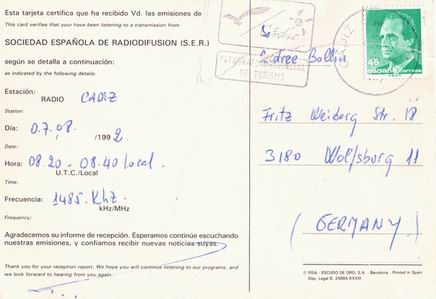 Esta tarjeta certifica que ha recibido Vd. las emisiones de
This card verifies that your have been listening to a transmission from
SOCIEDAD ESPAÑOLA DE RADIODIFUSION (S.E.R.)
según se detalla a continuación:
as indicated by the following details:
Estación:
RADIO CADIZ
Station:
Día: 07.08. /1992.
Date:
Hora: 08.20 - 08.40 local.
U.T.C./Local
Time:
Frecuencia: 1485.Khz
kHz/MHz
Frequency:
Agradecemos su informe de recepción. Esperamos continúe escuchando
nuestras emisiones, y confiamos recibir nuevas noticias suyas.
Thank you for your reception report. We hope you will continue listening to our programs, and
we look forward to hearing from you again.
PATRONATO PROVINCIAL
DE TURISMO
CADIZ
45
ESPAÑA correos
Fritz Weiberg Str. 18
3180 Wolfsburg 11
(GERMANY)
© FISA - ESCUDO DE ORO, S.A. - Barcelona - Printed in Spain
Dep. Legal B. 25684-XXXIII